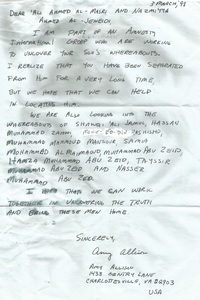 3 March, '91
Dear 'Ali Ahmed al-Masri and Nazmiyya
Ahmed al-Jendoi,
I am part of an Amnesty
International group who are working
to uncover your son's whereabouts.
I realize that you have been separated
from him for a very long time,
but we hope that we can help
in locating him.
We are also looking into the
whereabouts of Shawqi Jamil, Hassan
Muhammad
Muhammad Mahmoud Mansour
Mohammad al Mahmoud, Muhammad Abu Zeid,
Hamza Muhammad Abu Zeid, Tayssir
Muhammad Abu Zeid and Nasser
Muhammad Abu Zeid.
I hope that we can work
together in uncovering the truth
and bring these men home
Sincerely,
Amy Allison
Amy Allison
1433 Gentry Lane
Charlottesville, VA 22903
USA